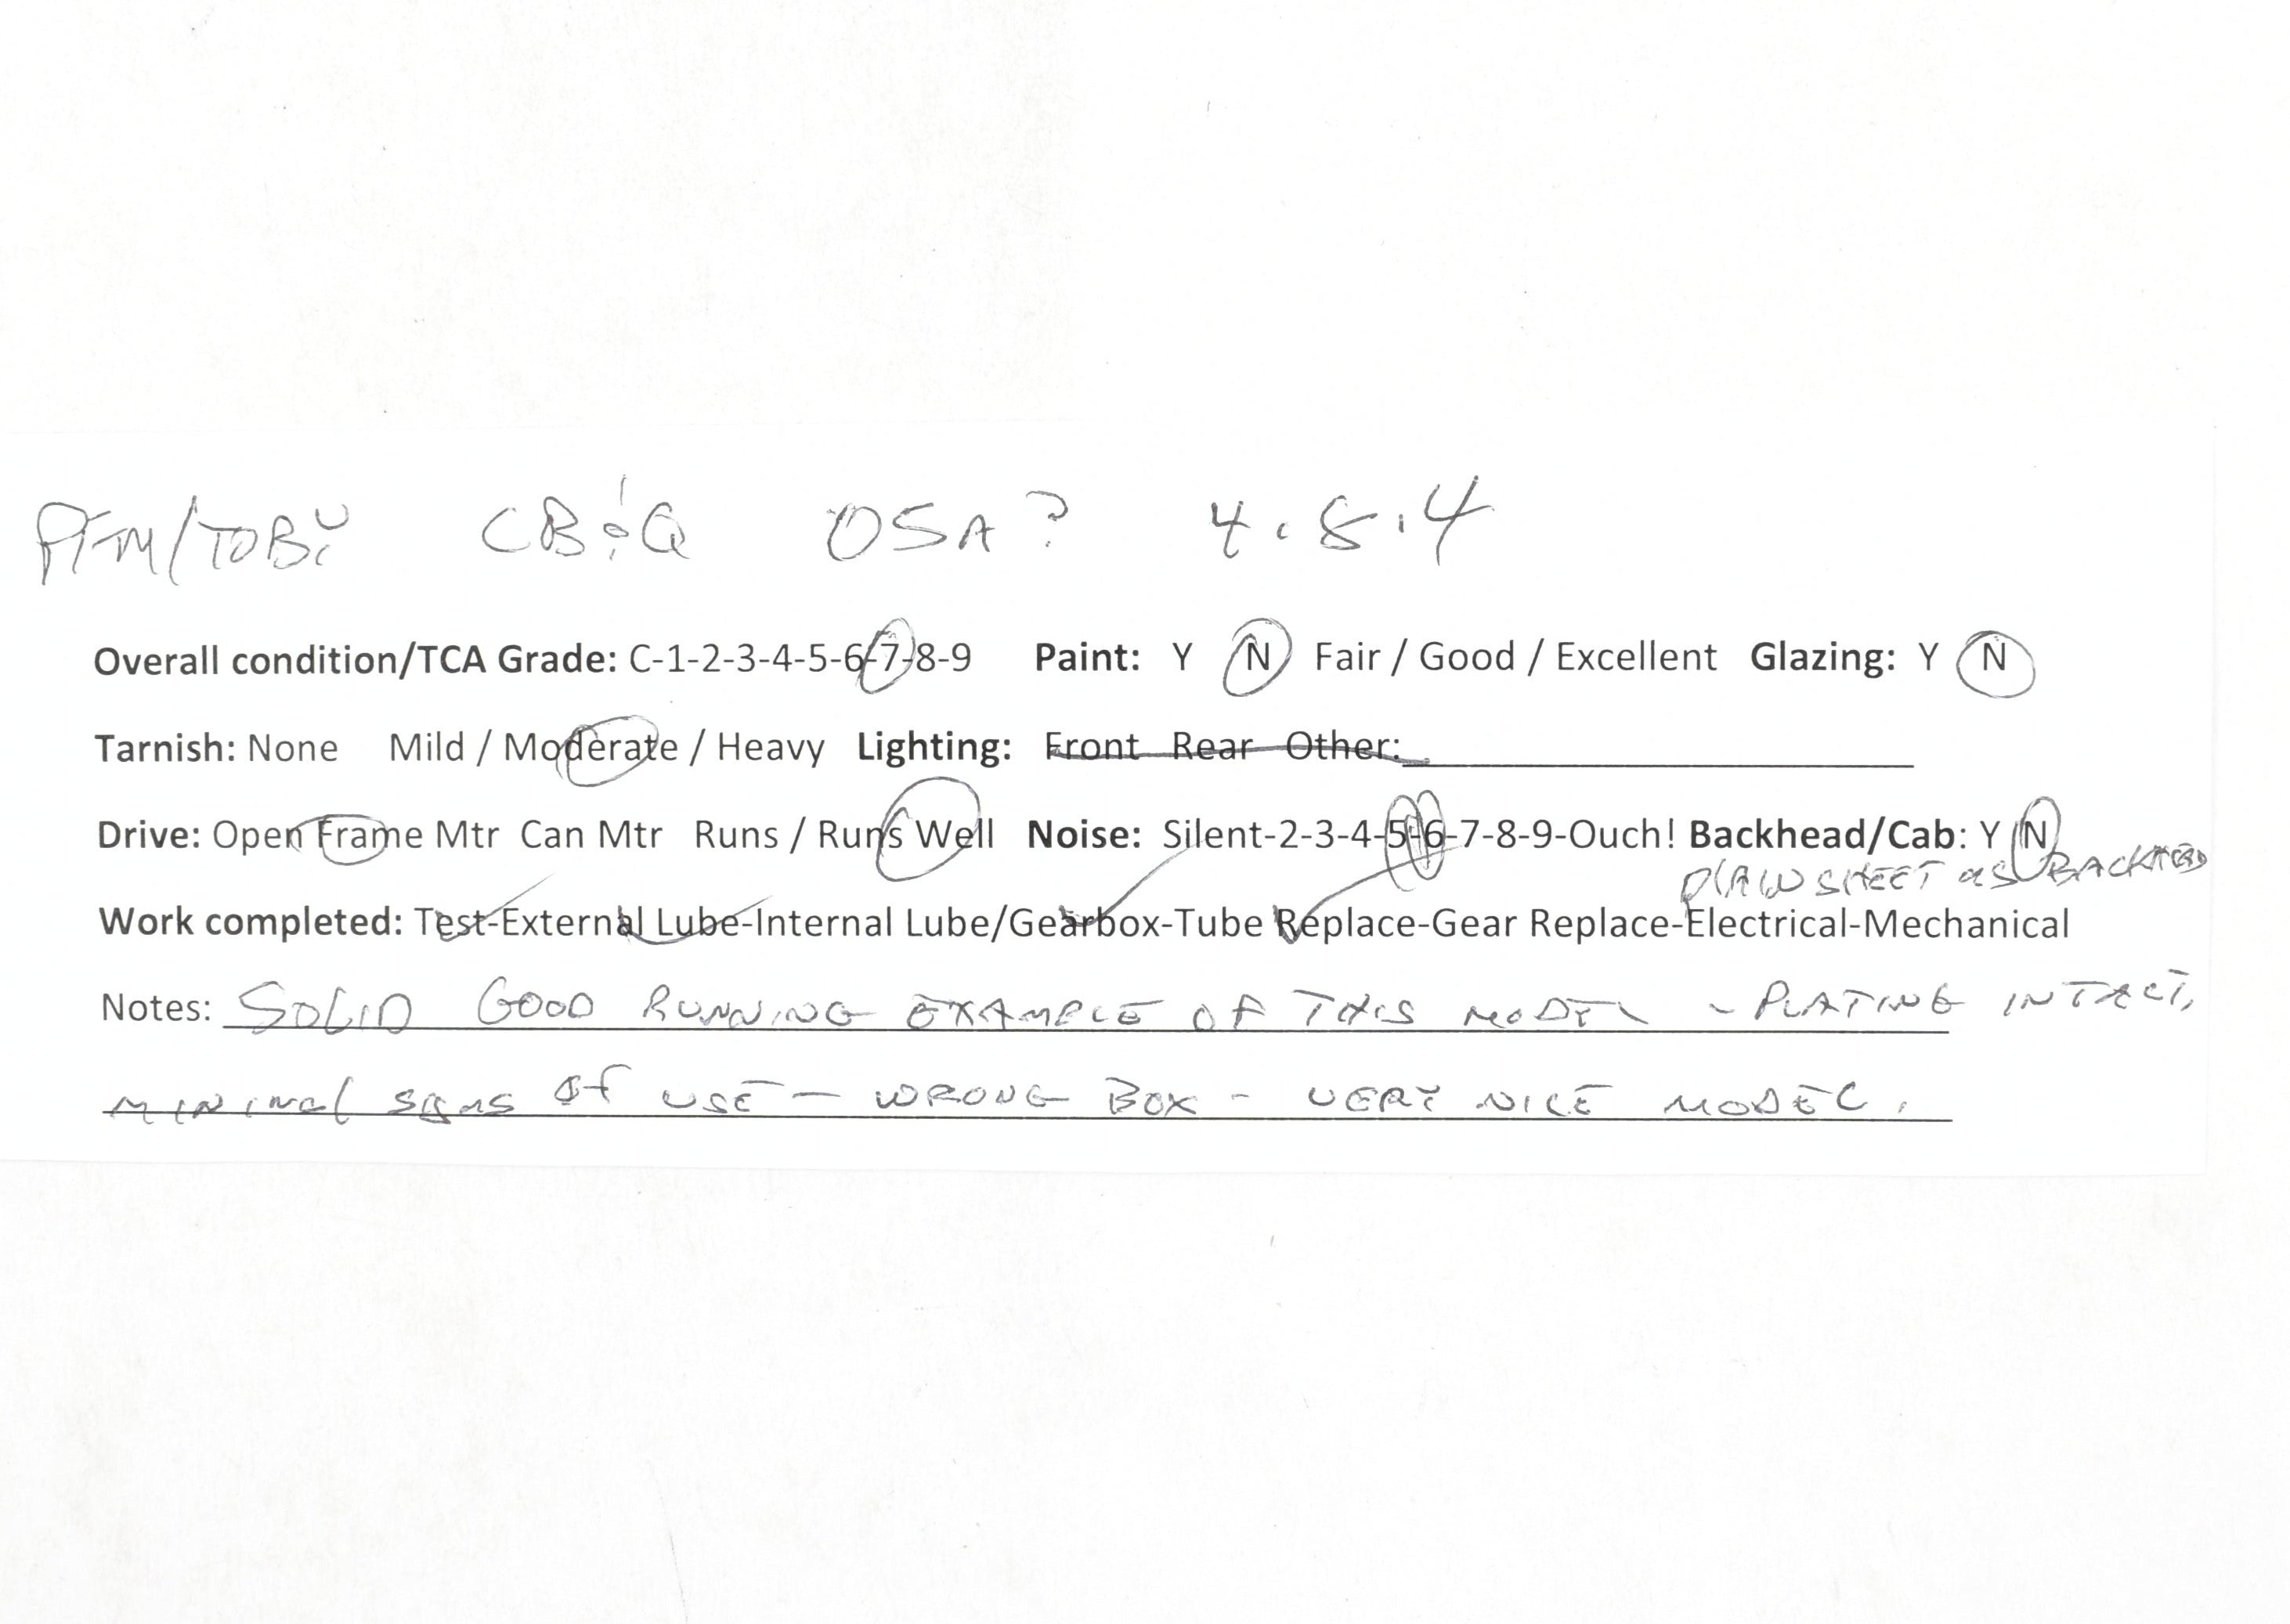 PFM/TOBY CB&Q OSA? 4.8.4
Overall condition/TCA Grade: C-1-2-3-4-5-6-7-8-9 Paint: Y N Fair / Good / Excellent Glazing: Y N
Tarnish: None Mild / Moderate / Heavy Lighting: Front Rear Other:
Drive: Open Frame Mtr Can Mtr Runs / Runs Well Noise: Silent-2-3-4-5-6-7-8-9-Ouch! Backhead/Cab: Y N
PLAIN SHEET as BACKHEAD
Work completed: Test-External Lube-Internal Lube/Gearbox-Tube Replace-Gear Replace-Electrical-Mechanical
Notes: SOLID GOOD RUNNING EXAMPLE OF THIS MODEL - PLATING INTACT,
MINIMAL SIGNS OF USE - WRONG BOX - VERY NICE MODEL.